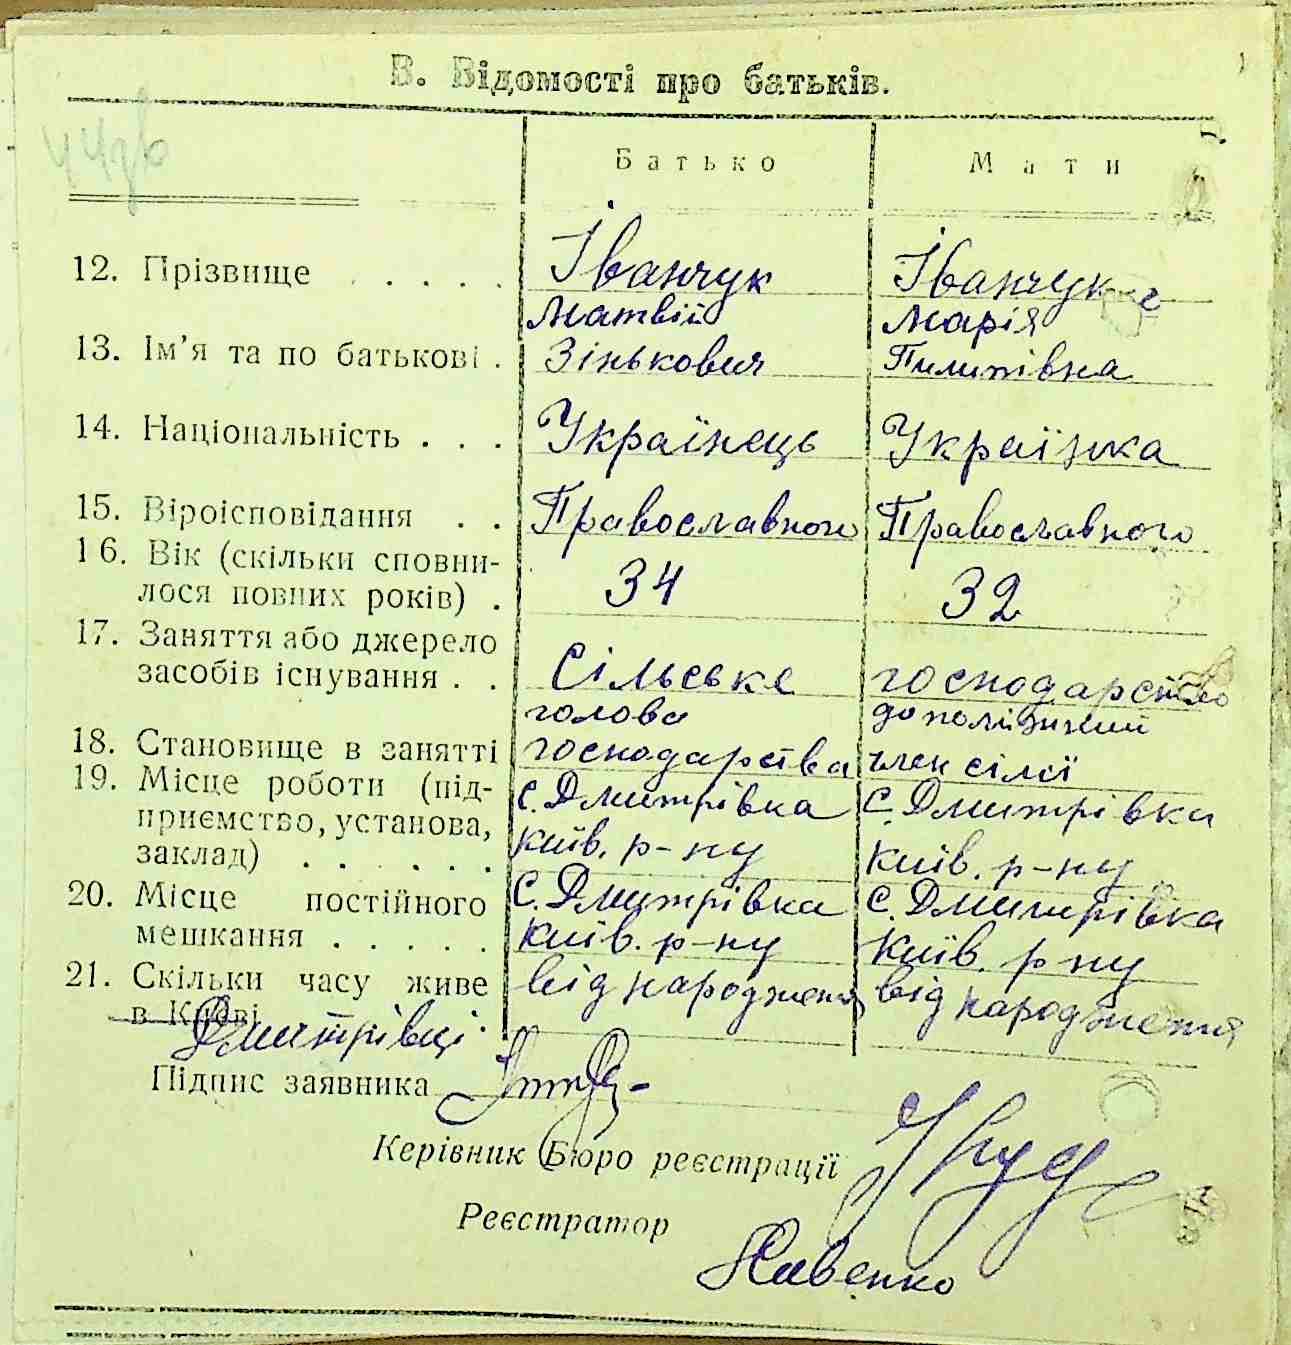 В. Відомості про батьків.
Батько Мати
12. Прізвище . . . . . Іванчук Іванчук
Матвій Марія
13. Ім’я та по батькові . Зінькович Пилипівна
14. Національність . . . Українець Українка
15. Віроісповідання . . Православного Православного
16. Вік (скільки сповни-
лося повних років) . 34 32
17. Заняття або джерело
засобів існування . . Сільське господарство
голова
18. Становище в занятті господарства член сімї
19. Місце роботи (під- с. Дмитрівка с. Дмитрівка
приємство, установа,
заклад) . . . . . Київ. р-ну Київ. р-ну
20. Місце постійного с. Дмитрівка с. Дмитрівка
мешкання . . . . . Київ. р-ну Київ. р ну
21. Скільки часу живе від народження від народження
в Києві
Дмитрівці.
Підпис заявника
Керівник Бюро реєстрації
Реєстратор